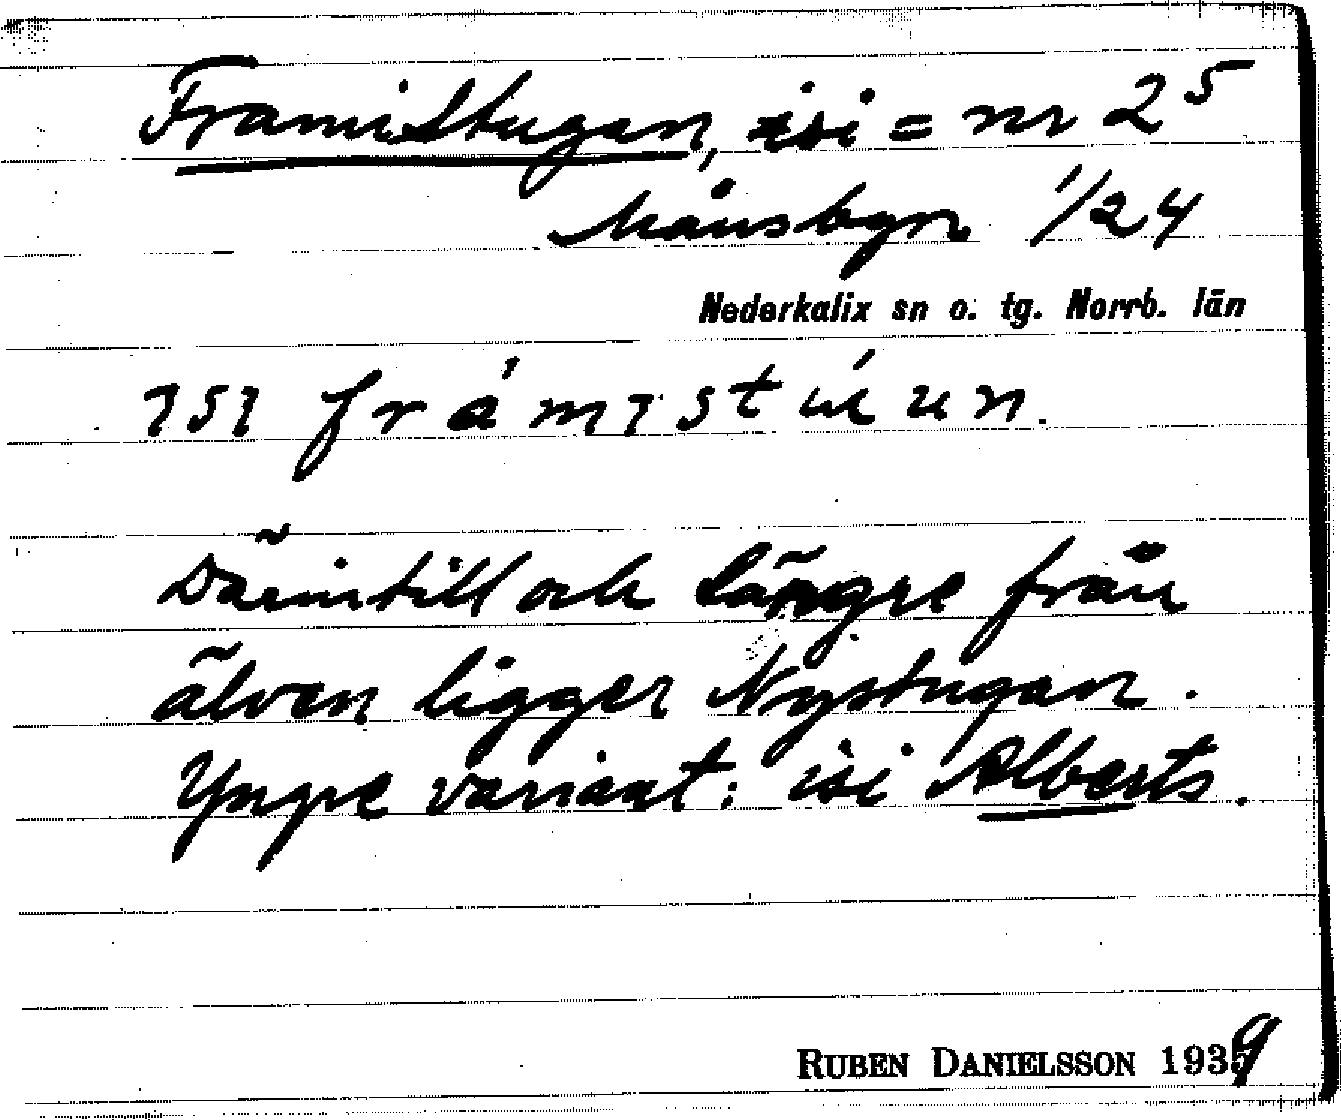 Framistugan, isi = nr 25
Månsbyn 1/24
Nederkalix sn o. tg. Norrb. län
ısı frámıstúun.
Därintill och längre från
älven ligger Nystugan.
Yngre variant: isi Alberts.
RUBEN DANIELSSON 1939